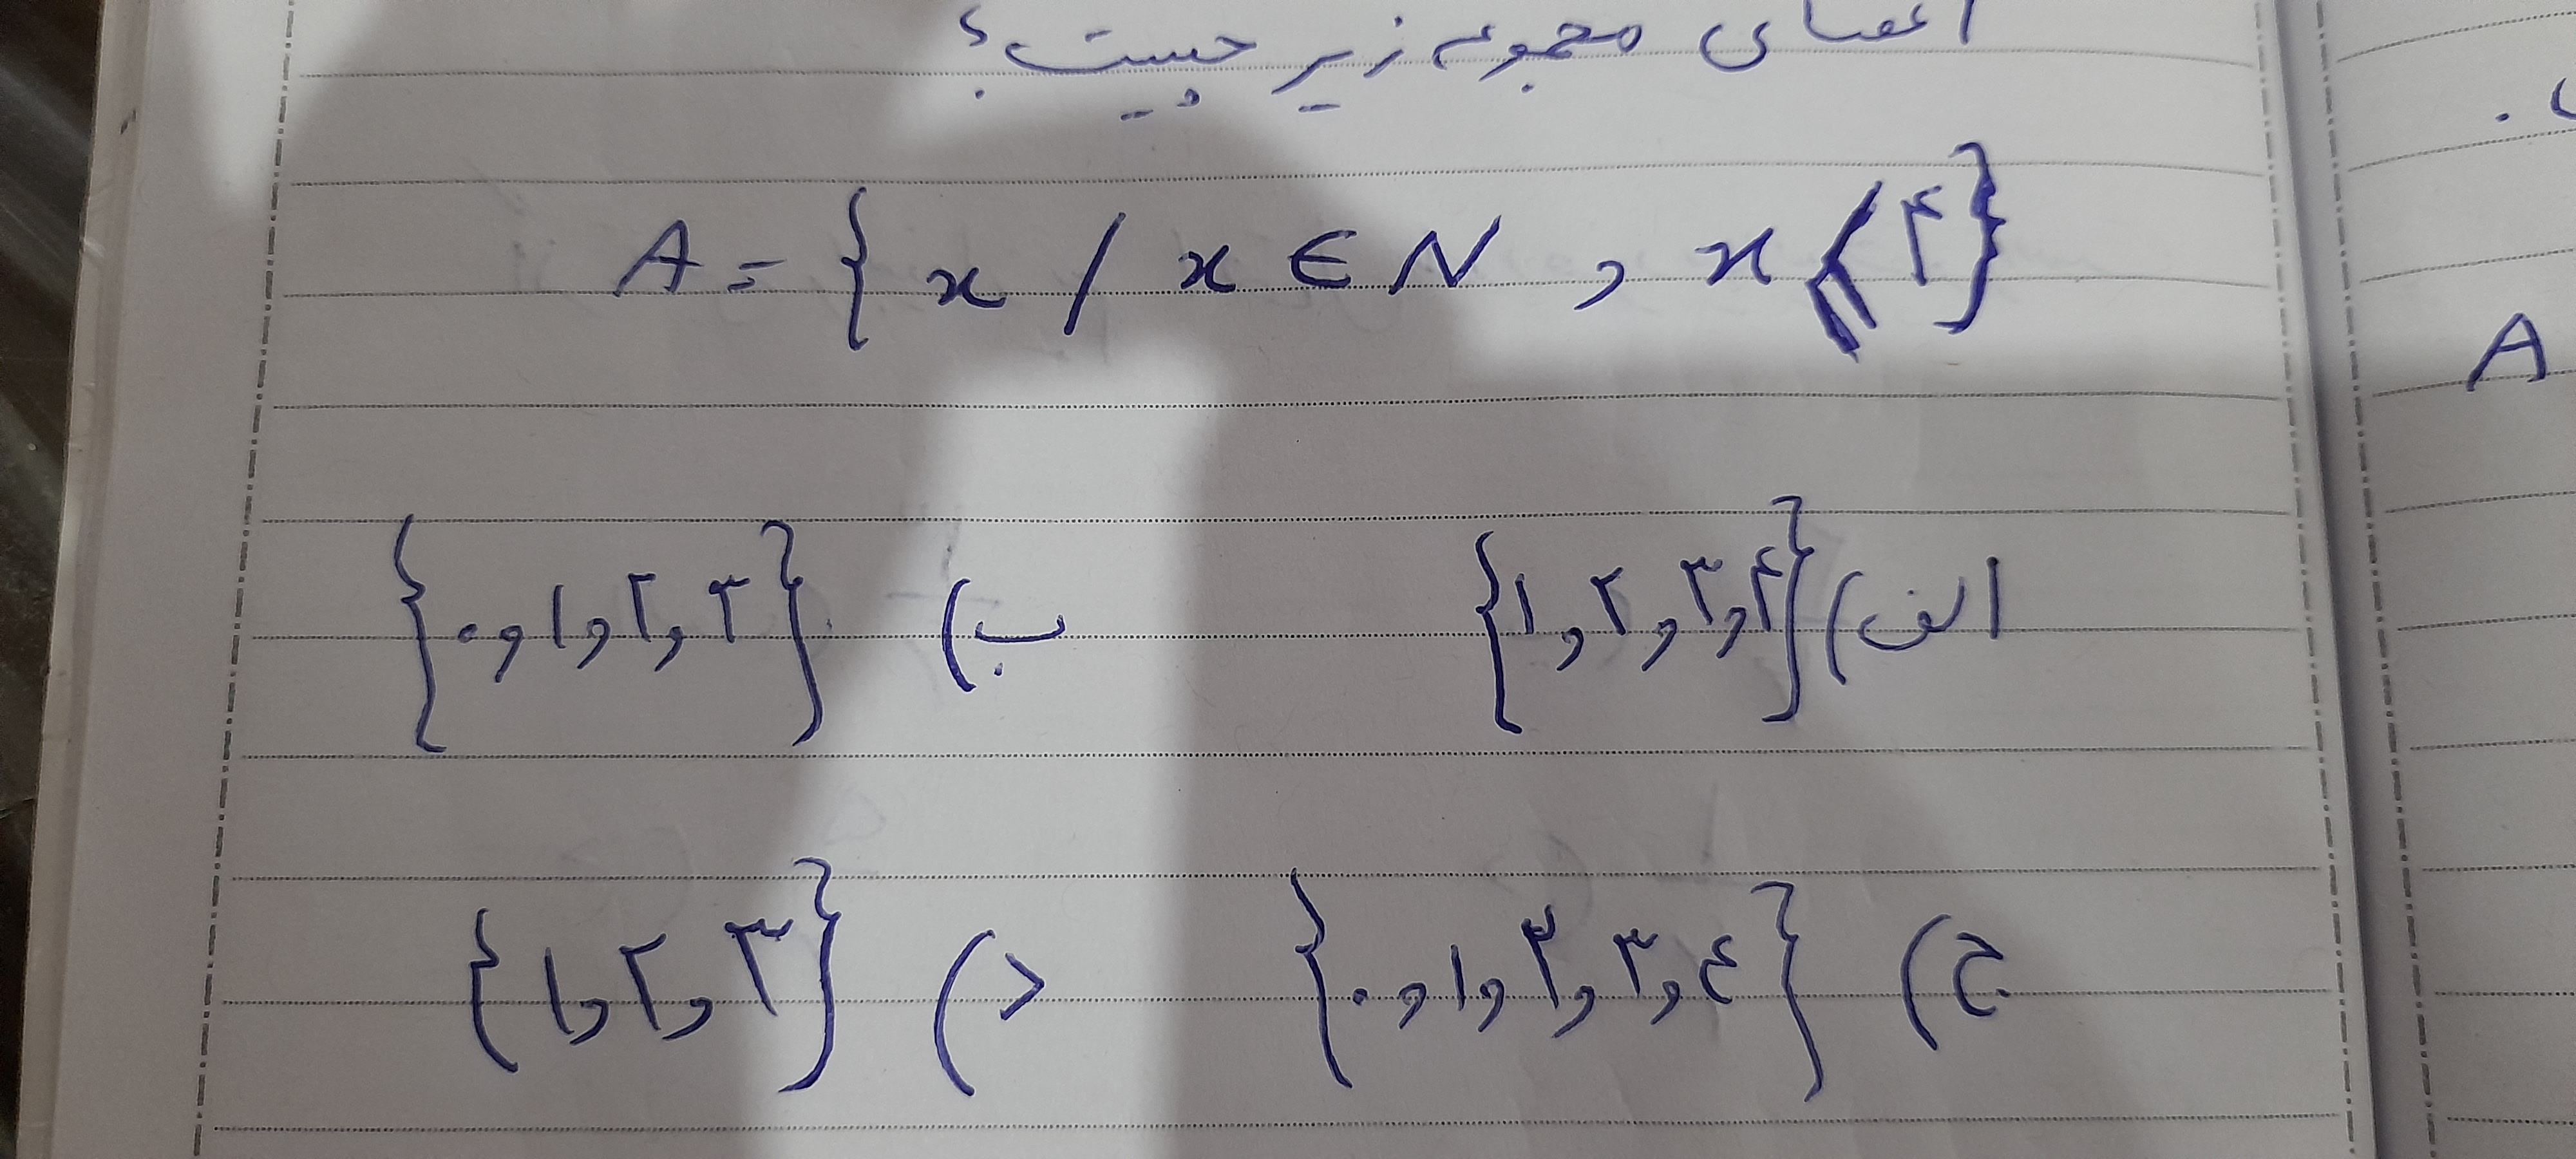 اعضای مجموعه زیر چیست؟
A = { x / x ∈ N , x ⩽ ۴ }
الف) {۱, ۲, ۳, ۴} ب) {۰, ۱, ۲, ۳}
ج) {۰, ۱, ۲, ۳, ۴} د) {۱, ۲, ۳}
A